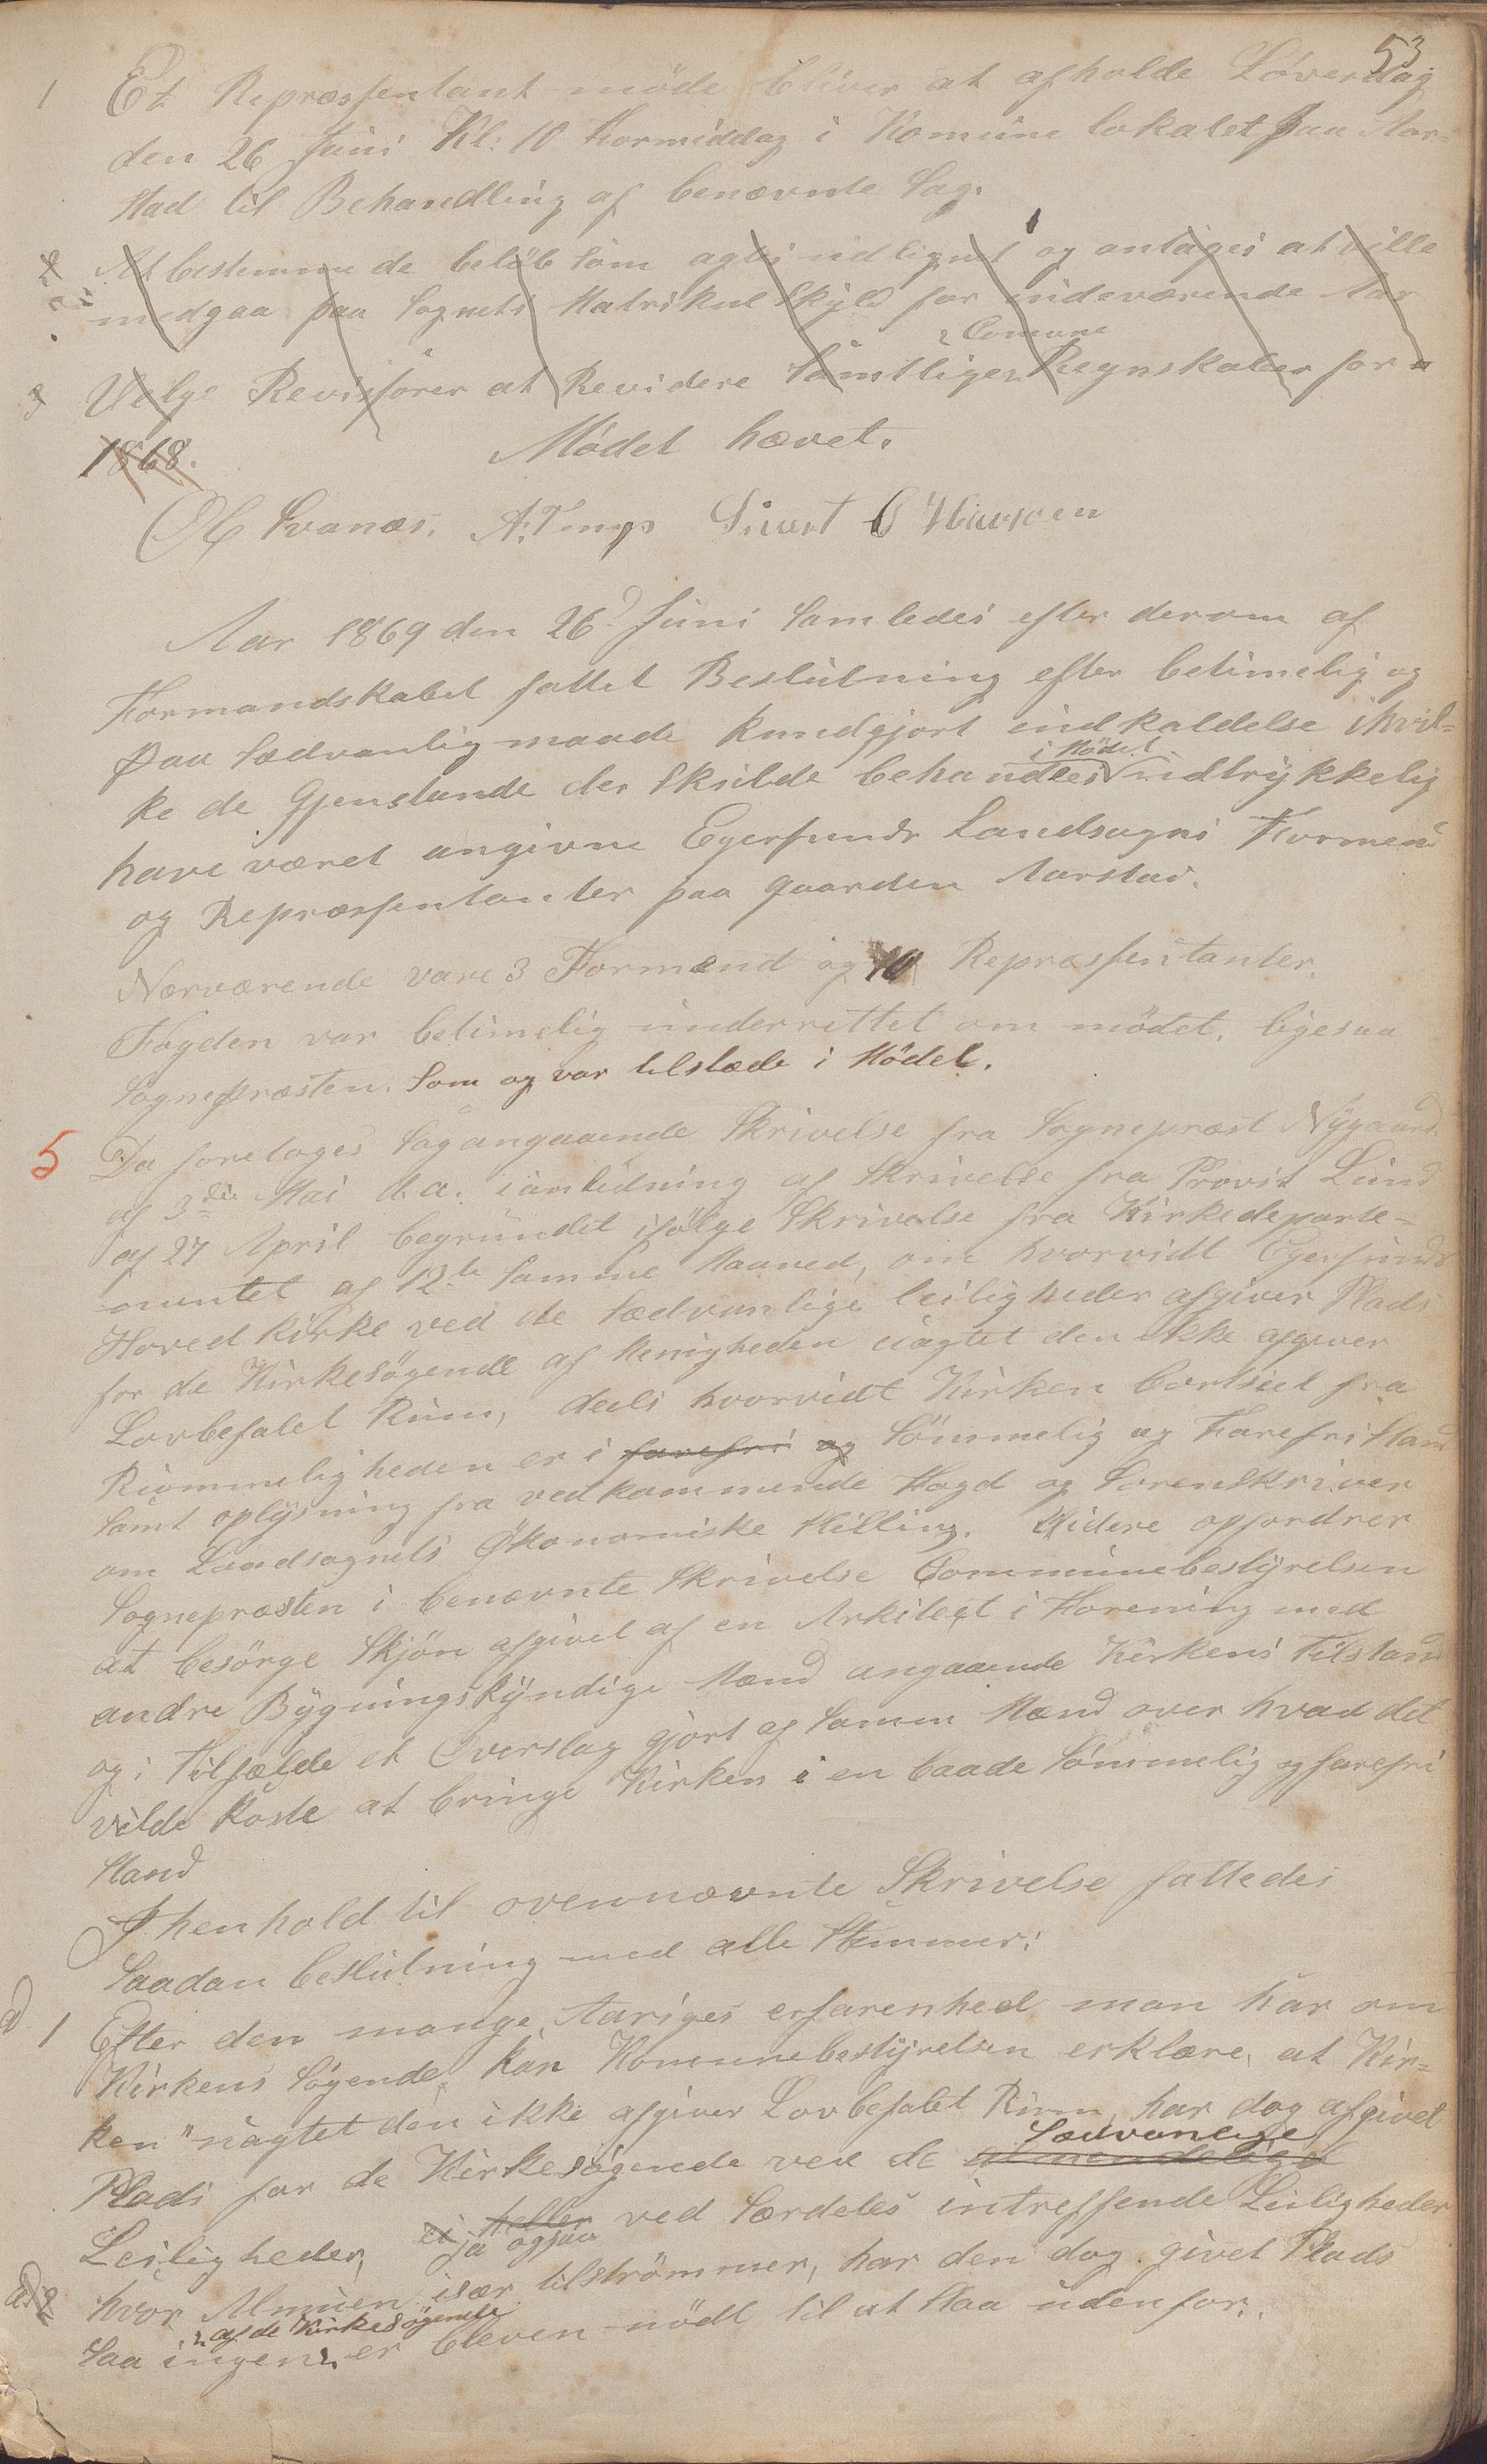 53
1 Et Repræsentant møde bliver at afholde Løverdag
den 26 Juni Kl: 10 Formiddag i Komune lokalet paa Aar-
stad til Behandling af benævnte Sag.
2 At bestemme de beløb som agtes udlignet og antages at ville
medgaa paa Sognets Matrikul Skyld for indeværende Aar
Comune
3 Vælge Revisorer at Revidere Samtlige Regnskaber for
1868.
Mødet hævet.
Svanæs. A. Tengs Sivert
Aar 1869 den 26 Juni Samledes efter derom af
Formandskabet fattet Beslutning efter betimelig og
paa Sædvanlig maade kundgjort indkaldelse ihvil-
i Mødet
ke de Gjenstande der Skulde behandles udtrykkelig
have været angivne Egersunds Landsogns Formend
og Repræsentanter paa Gaarden Aarstad.
Nærværende vare 3 Formænd og 10 Repræsentanter.
Fogden var betimelig underrettet om mødet. ligesaa
Sognepræsten. Som og var tilstæde i Mødet.
5 Da foretoges Sag angaaende Skrivelse fra Sognepræst Nygaard
af 3die Mai d.a. i anledning af Skrivelse fra Provst Lund
af 27 April begrundet ifølge Skrivelse fra Kirkedeparte-
mentet af 12te Samme Maaned, om hvorvidt Egersunds
Hovedkirke ved de Sædvanlige leiligheder afgiver Plads
for de Kirkesøgende af Menigheden uagtet den ikke afgiver
Lovbefalet Rum, deels hvorvidt Kirken bortseet fra
Rummeligheden er i farefri og Sømmelig og Farefri Stand
Samt oplysning fra vedkommende Fogd og Sorenskriver
om Landsognets Økonomiske Stilling. Videre opfordrer
Sognepræsten i benævnte Skrivelse Communebestyrelsen
at besørge Skjøn afgivet af en Arkitect i Forening med
andre Bygningskyndige Mænd angaaende Kirkens Tilstand
og i Tilfælde et Overslag gjort af Samme Mænd over hvad det
vilde koste at bringe Kirken i en baade Sømmelig og farefri
Stand
I henhold til ovennævnte Skrivelse fattedes
Saadan beslutning med alle Stemmer:
ad 1 Efter den mange Aariges erfarenhed man har om
Kirkens Søgende, kan Komunebestyrelsen erklære, at Kir-
ken uagtet den ikke afgiver Lovbefalet Rum, har dog afgivet
Sædvanlige
Plads for de Kirkesøgende ved de almindelige
Leiligheder, ei heller ved Særdeles intreffende Leiligheder
ja ogsaa
ad 2 hvor Almuen især tilstrømmer, har den dog givet Plads
af de Kirkesøgende
Saa ingen er bleven nødt til at Staa udenfor.